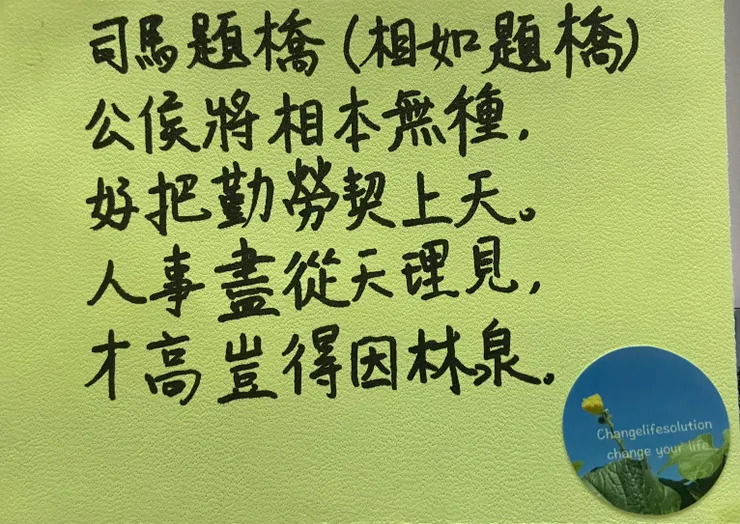 司馬題橋（相如題橋）
公侯將相本無種，
好把勤勞契上天。
人事盡從天理見，
才高豈得因林泉。
Changelifesolution
change your life